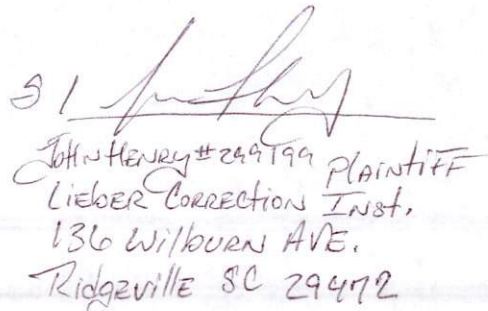 S/
John Henry #299199 Plaintiff
Lieber Correction Inst.
136 Wilburn AVE.
Ridgeville SC 29472